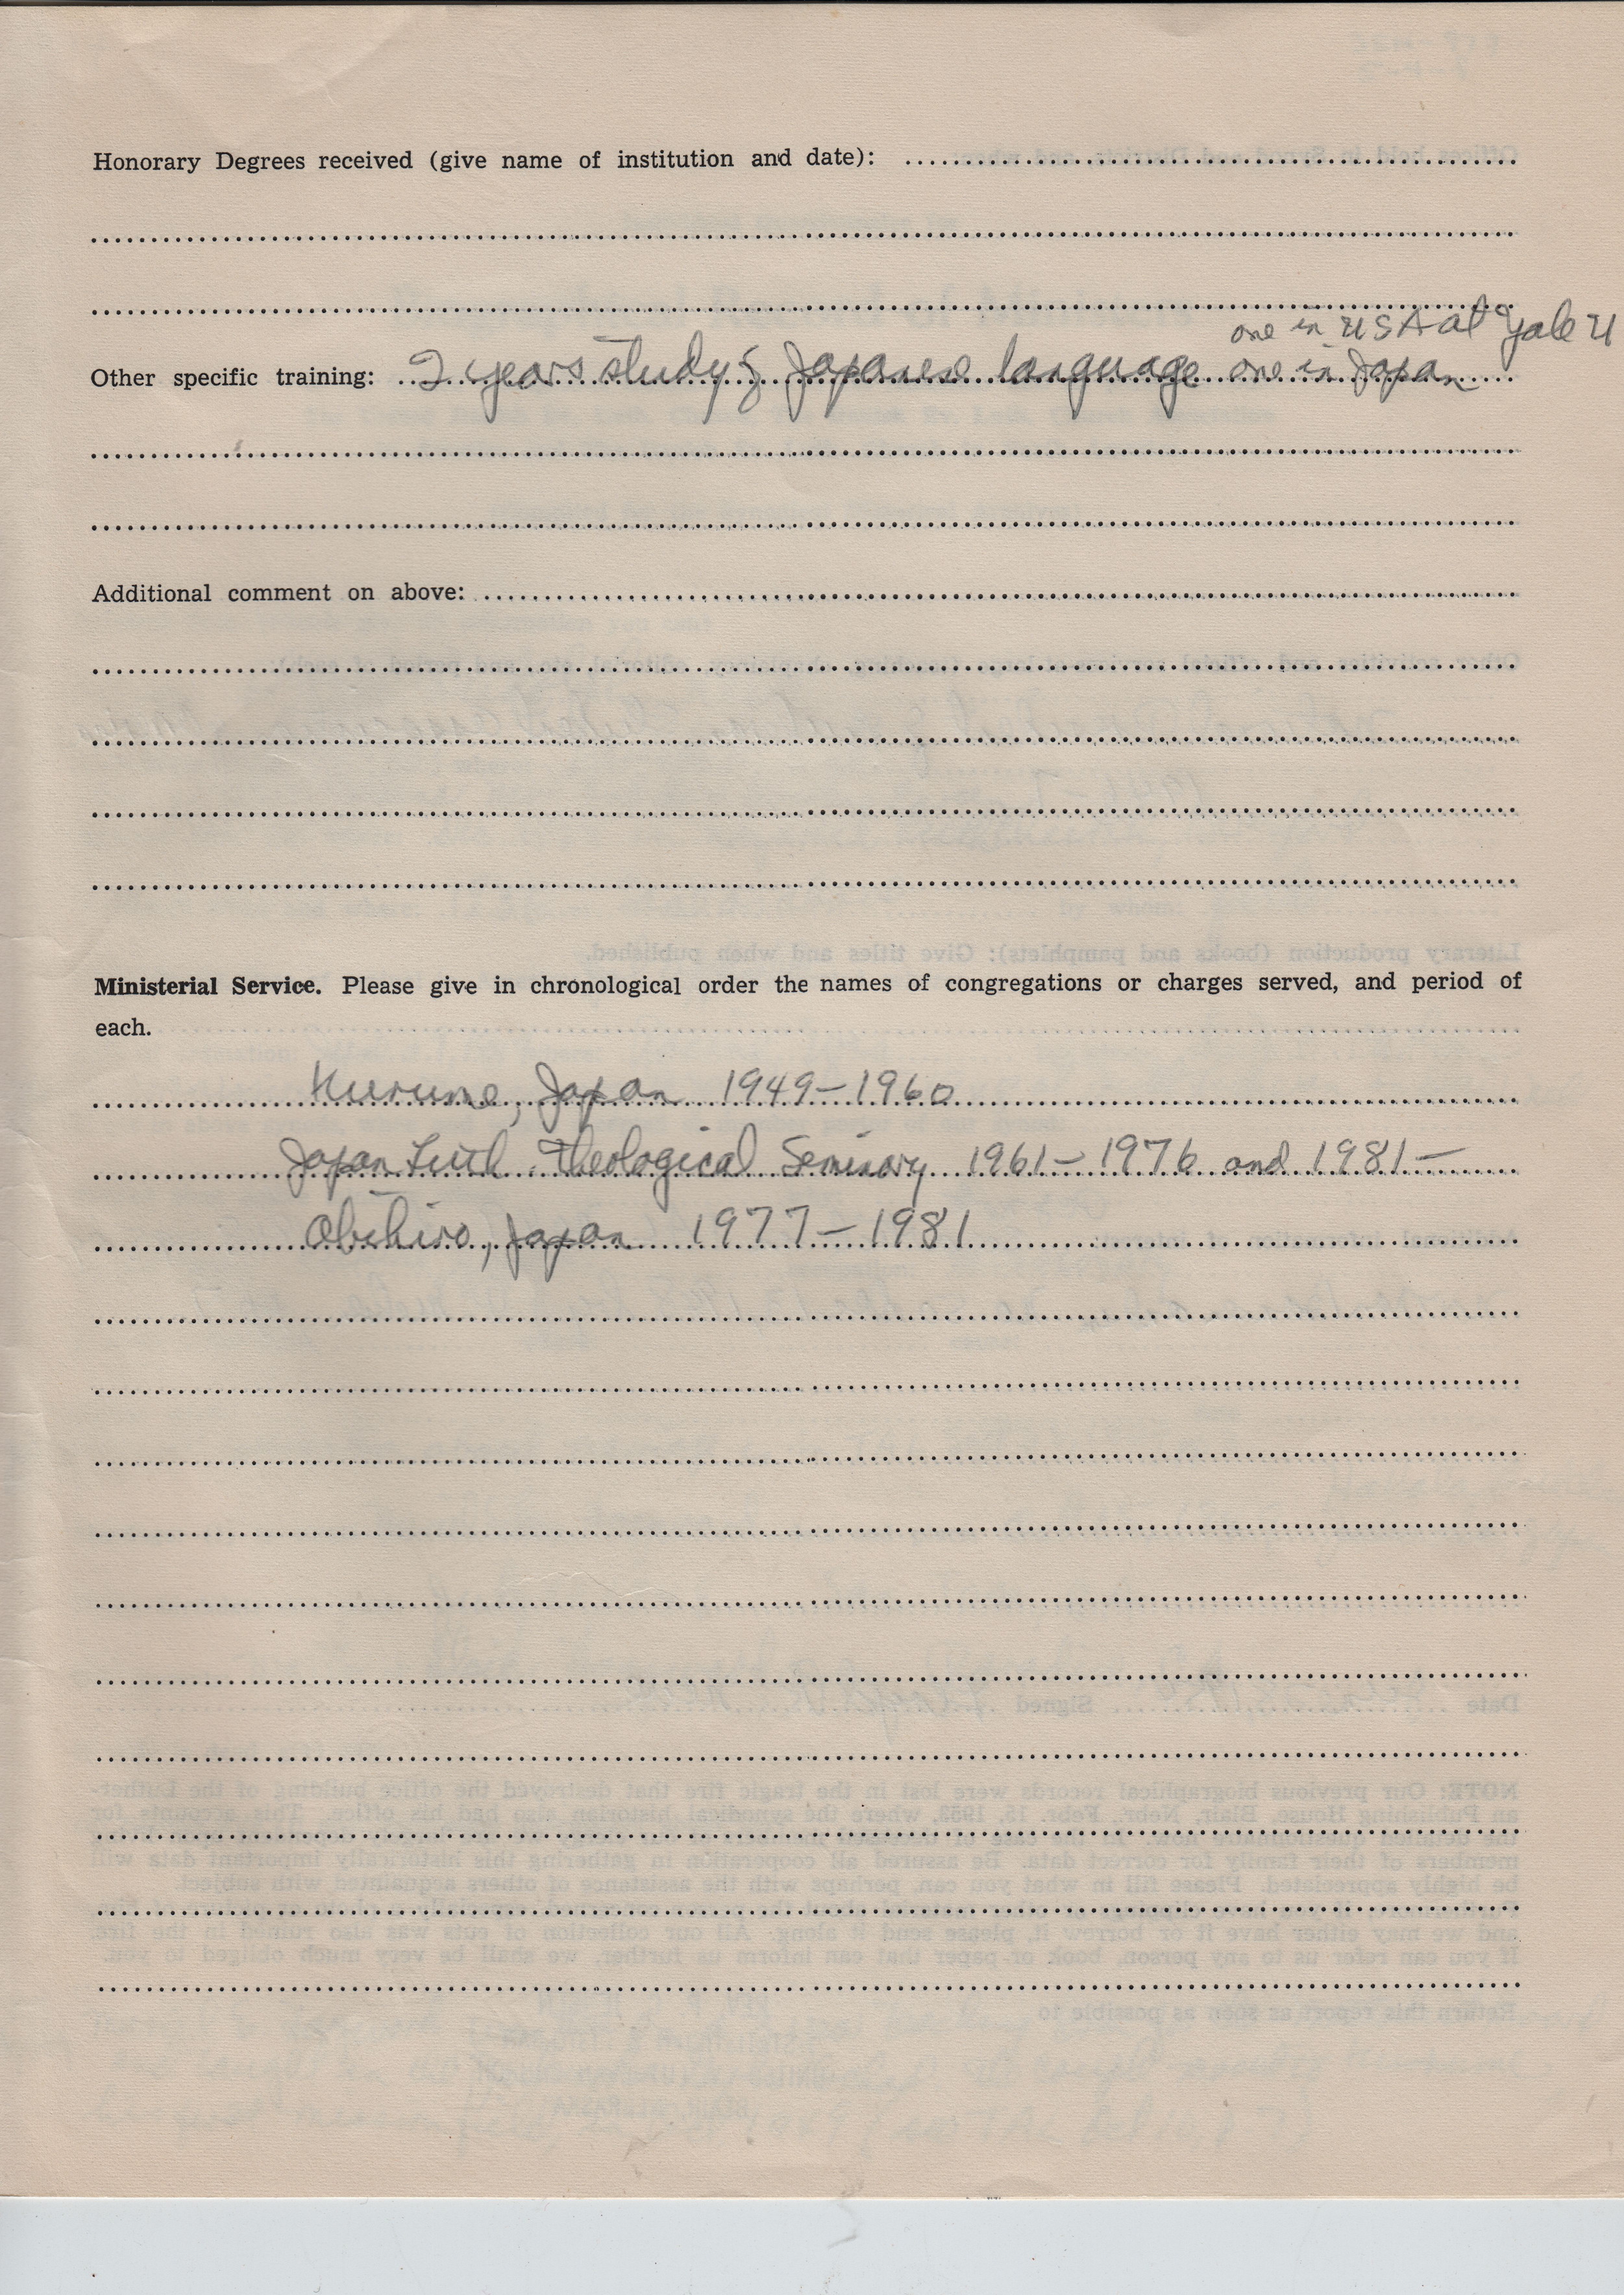 Honorary Degrees received (give name of institution and date):
one in USA at Yale U
Other specific training: 2 years study of Japanese language one in Japan
Additional comment on above:
Ministerial Service. Please give in chronological order the names of congregations or charges served, and period of
each.
Kurume, Japan 1949-1960
Japan Luth. Theological Seminary 1961-1976 and 1981-
Obihiro, Japan 1977-1981